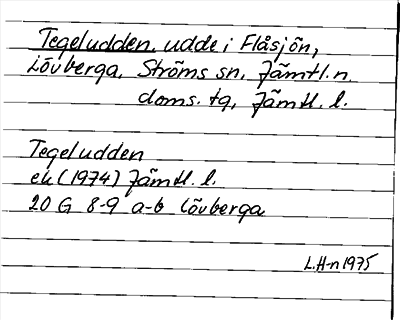 Tegeludden, udde i Flåsjön,
Lövberga, Ströms sn, Jämtl. n.
doms. tg, Jämtl. l.
Tegeludden
ek (1974) Jämtl. l.
20 G 8-9 a-b Lövberga
L.H-n 1975